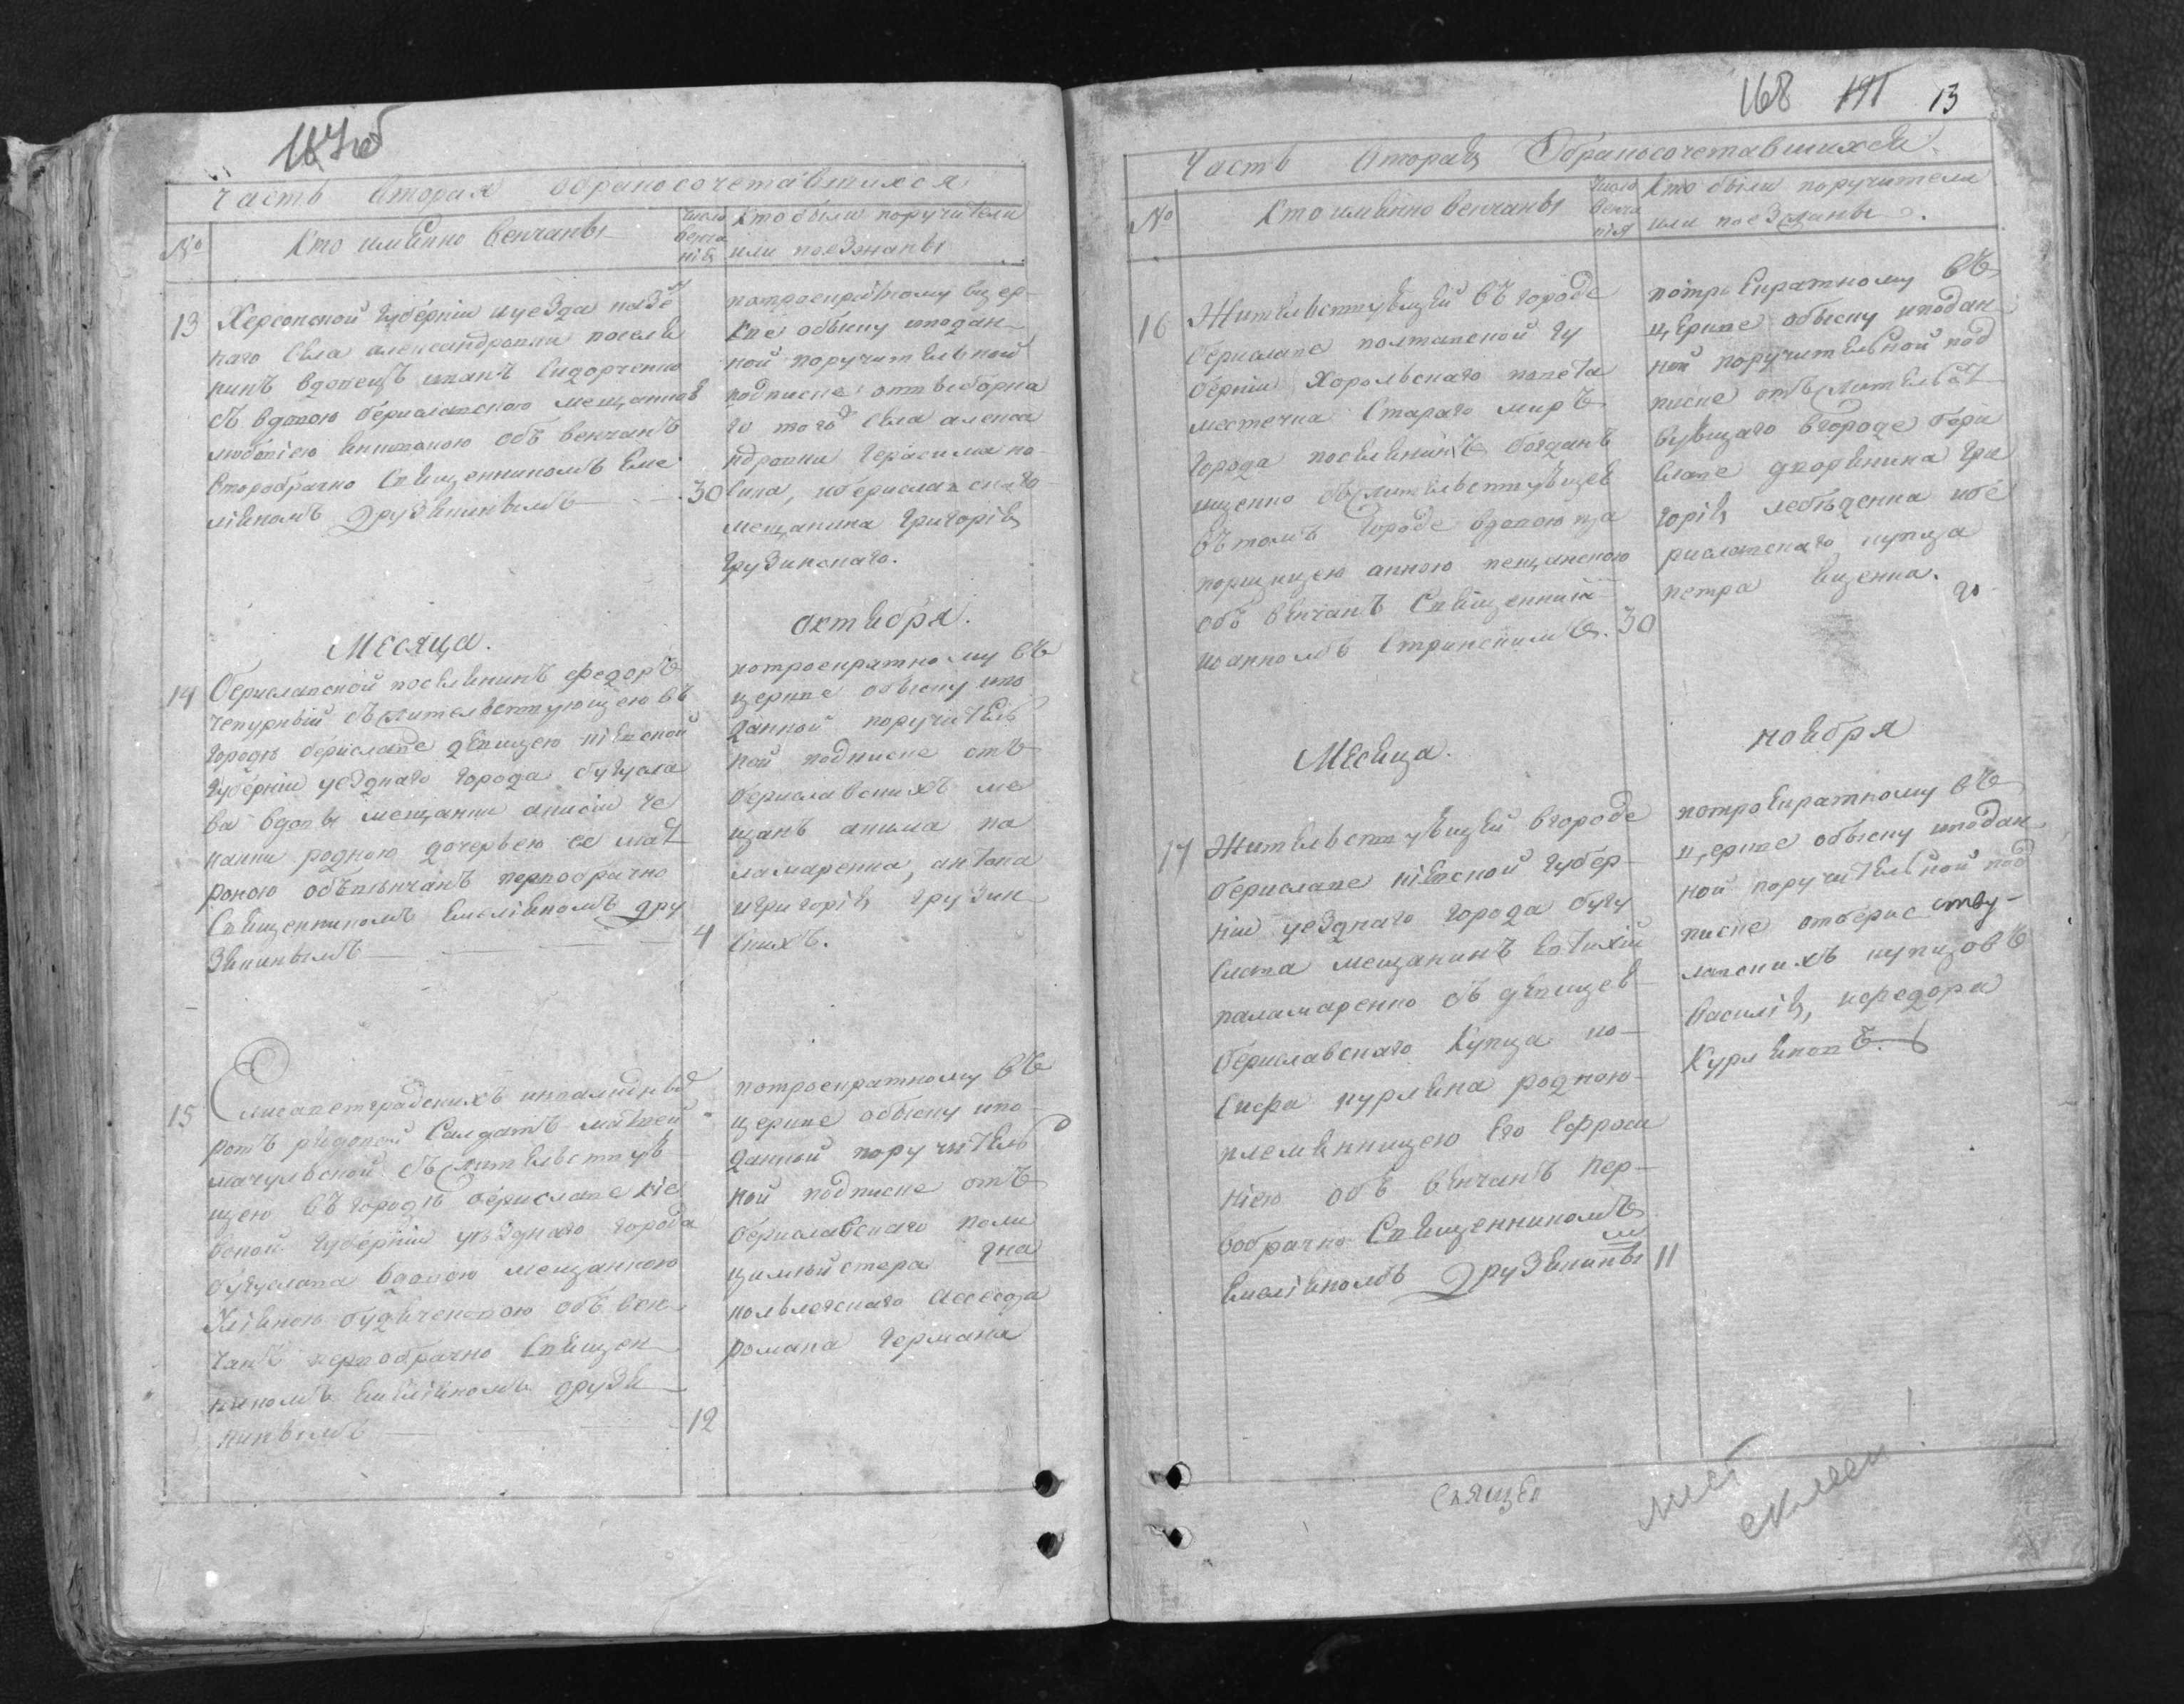 167об
Часть вторая обракосочетавшихся
№ Кто имянно венчаны Число венча нія Кто были поручители или поезжаны
13 Херсонской губерніи иуезда казе
наго села александровки поселя
нинъ вдовецъ иванъ Сидорченко
съ вдовою бериславскою мещанкою
второбрачно Священникомъ Еме
ліяномъ Друзякинымъ 30
потроекратному вцер
кве обыску иподан
ной поручительной
подписке отвыборна
го тогожъ села алекса
ндровки Герасима ко
вила, ибериславскаго
мещанина григорія
грузинскаго.
Месяца. октября.
14 Бериславской поселянинъ федоръ
чепурный съ жительствующею въ
городе бериславе девицею кіевской
губерніи уезднаго города богусла
ва вдовы мещанки
родною дочерью ее мат
роною объвенчанъ первобрачно
Священникомъ Емеліяномъ дру
зякинымъ 4
потроекратному въ
церкве обыску ипо
данной поручитель
ной подписке отъ
бериславскихъ ме
щанъ акима па
ламаренка, антона
игригорія грузин
скихъ.
15 Елисаветградскихъ инвалидныхъ
ротъ рядовой Салдатъ матвей
мачульской съ жительствую
щею въ городе бериславе кіе
вской губерніи уезднаго города
богуслава вдовою мещанкою
объ вен
чанъ первобрачно Священ
никомъ Емеліяномъ друзя
кинымъ 12
потроекратному въ
церкве обыску ипо
данной поручитель
ной подписке отъ
бериславскаго поли
цымейстера
колежскаго асесора
романа германа
168 191 13
Часть Вторая Обракосочетавшихся
№ Кто имянно венчаны Число венча нія Кто были поручители или поезжаны
16 Жительствующей въ городе
бериславе полтавской гу
берніи Хорольскаго повета
местечка Стараго миръ
города поселянинъ богданъ
ищенко съ жительствующею
въ томъ городе вдовою
анною
объ венчанъ Священникомъ
иоанномъ Стринскимъ. 30
потроекратному въ
церкве обыску иподан
ной поручительной под
писке отъ жительст
вующаго вгороде бери
славе дворянина гри
горія лебеденка ибе
риславскаго купца
петра ищенка.
Месяца. ноября
17 Жительствующей вгороде
бериславе кіевской губер
ніи уезднаго города богу
слава мещанинъ Евтихій
паламаренко съ девицею
бериславскаго Купца ио
сифа курлина родною
племянницею его Ефроси
ніею объ венчанъ пер
вобрачно Священникомъ
Емеліяномъ Друзякинымъ 11
потроекратному въ
церкве обыску иподан
ной поручительной под
писке отберис
лавскихъ купцовъ
василія, ифедора
Курляковъ.
Священ
лист
склеен